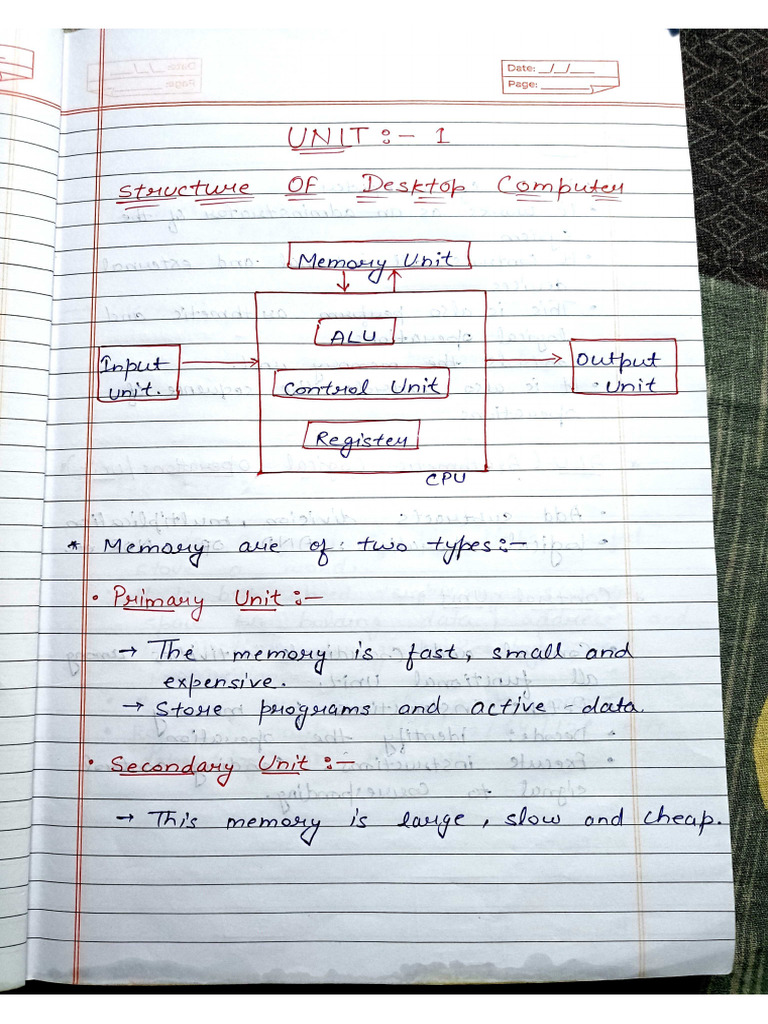 Date: __/__/___
Page: ________
UNIT :- 1
Structure OF Desktop Computer
Memory Unit
ALU
Input
unit.
Control Unit
Output
Unit
Register
CPU
* Memory are of two types:-
• Primary Unit :-
→ The memory is fast, small and
expensive.
→ Store programs and active-data.
• Secondary Unit :-
→ This memory is large, slow and cheap.